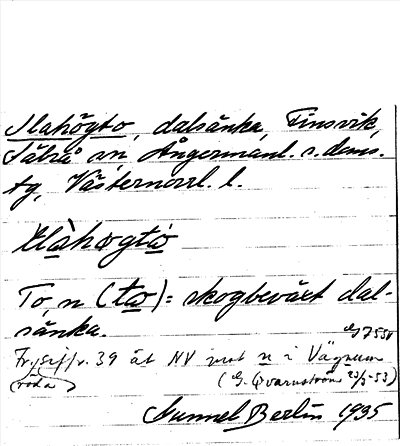 Slahögto, dalsänka, Finsvik,
Säbrå sn, Ångermanl. s. doms.
tg, Västernorrl. l.
To, n (to) = skogbeväxt dal-
sänka.
G 7550
39 åt NV mot n i Vägnum
röda (G. Qvarnström 23/3-53)
Gunnel Berlin 1935